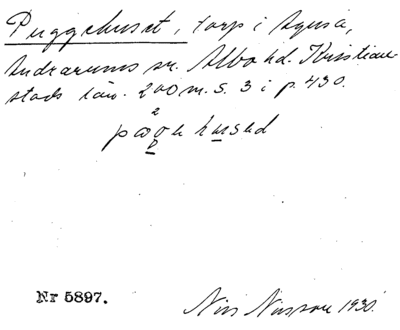 Puggehuset, torp i Agusa,
Andrarums sn. Albo hd. Kristian-
stads län. 200 m. S. 3 i p. 430.
Nr 5897.
Nils Nilsson 1930.